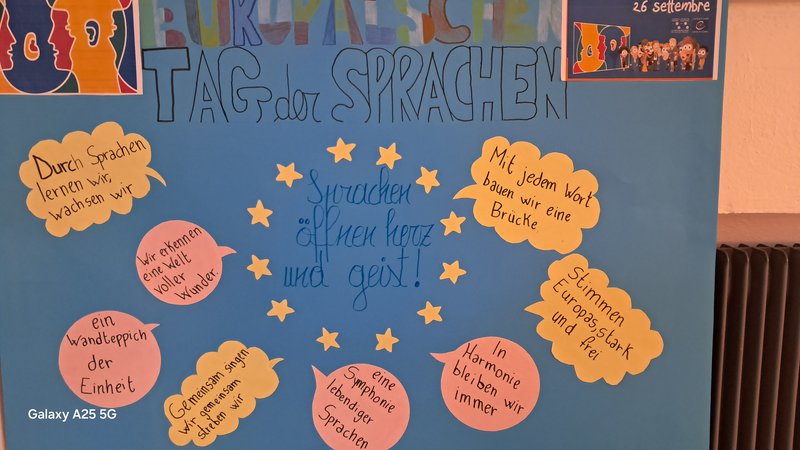 EUROPÄISCHEN
TAG der SPRACHEN
26 settembre
Durch Sprachen
lernen wir,
wachsen wir
Mit jedem Wort
bauen wir eine
Brücke
Sprachen
öffnen herz
und geist!
Wir erkennen
eine Welt
voller
Wunder.
Stimmen
Europas, stark
und frei
ein
Wandteppich
der
Einheit
Gemeinsam singen
wir gemeinsam
streben wir
eine
Symphonie
lebendiger
Sprachen
In
Harmonie
bleiben wir
immer
Galaxy A25 5G